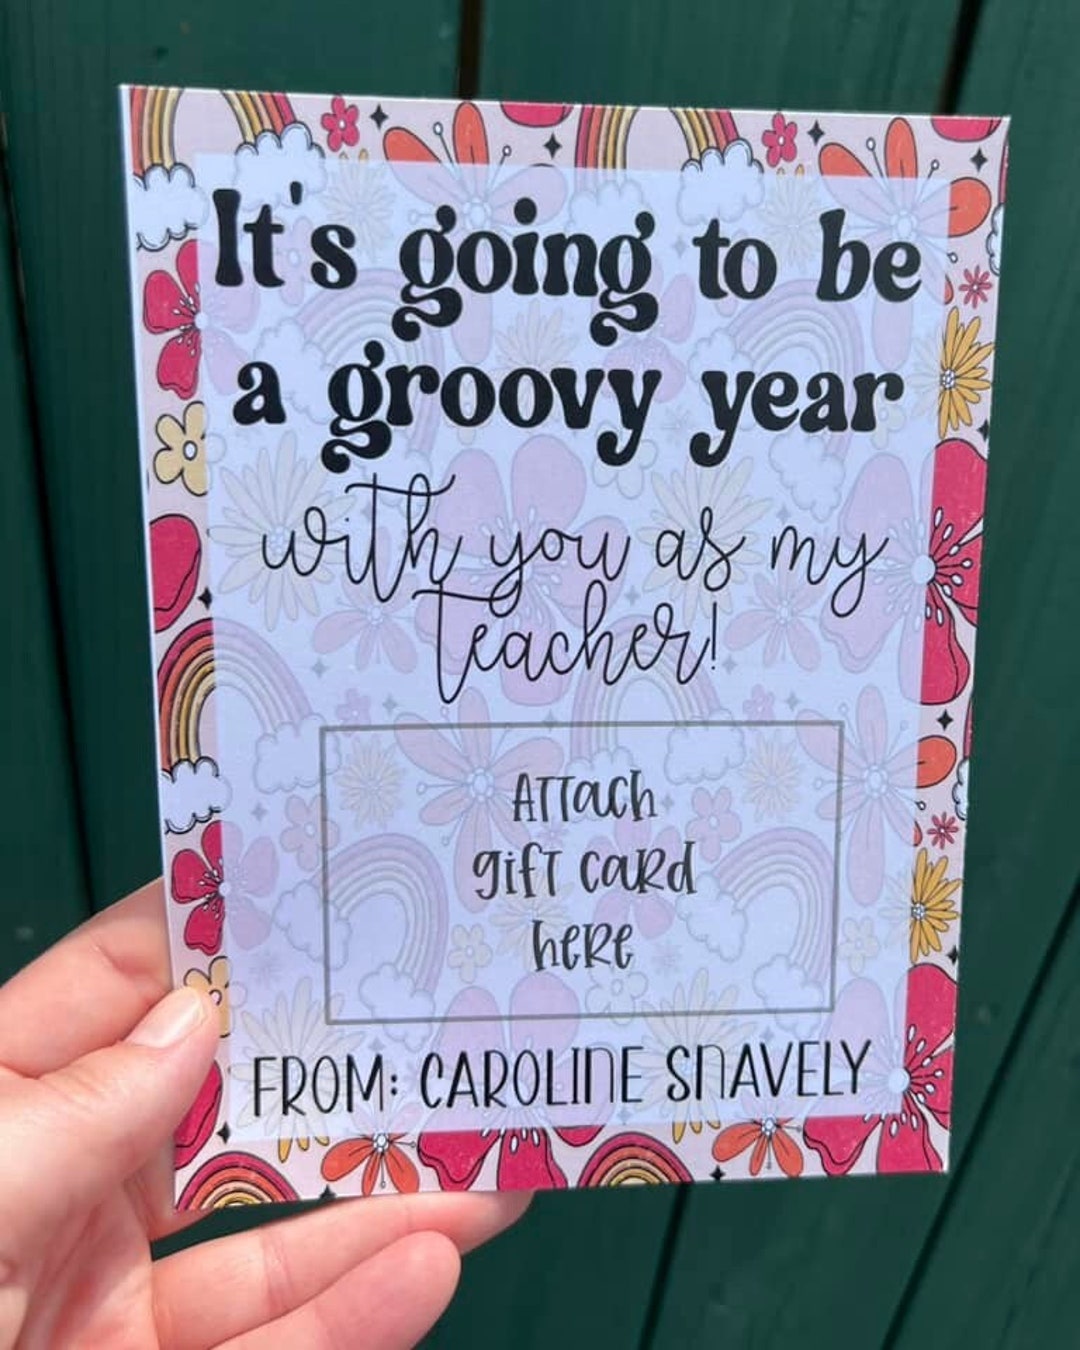 It's going to be
a groovy year
with you as my
teacher!
Attach
gift card
here
FROM: CAROLINE SNAVELY